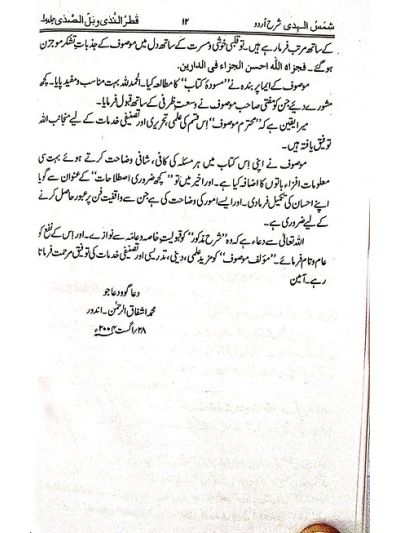 شمس الہدی شرح اردو ۱۲ قطر الندی وبل الصدی جلد
کے ساتھ مرتب فرمارہے ہیں۔ تو قلبی خوشی ومسرت کے ساتھ دل میں موصوف کے جذباتِ تشکر موجزن
ہوگئے۔ فجزاہ اللہ احسن الجزاء فی الدارین۔
موصوف کے ایما پر بندہ نے "مسودۂ کتاب" کا مطالعہ کیا۔ الحمد للہ بہت مناسب ومفید پایا۔ کچھ
مشورے دیئے جن کو مفتی صاحب موصوف نے وسعت ظرفی کے ساتھ قبول فرمایا۔
میرا یقین ہے کہ "محترم موصوف" اِس قسم کی علمی، تحریری اور تصنیفی خدمات کے لیے منجانب اللہ
توفیق یافتہ ہیں۔
موصوف نے اپنی اِس کتاب میں ہر مسئلہ کی کافی، شافی وضاحت کرتے ہوئے بہت سی
معلومات افزاء باتوں کا اضافہ کیا ہے۔ اور اخیر میں تو "کچھ ضروری اصطلاحات" کے عنوان سے گویا
اپنے احسان کی تکمیل فرمادی۔ اور ایسے امور کی وضاحت کی ہے جن سے واقفیت فن پر عبور حاصل کرنے
کے لیے ضروری ہے۔
اللہ تعالیٰ سے دعاء ہے کہ وہ "شرح مذکور" کو قبولیتِ خاصہ وعامہ سے نوازے۔ اور اِس کے نفع کو
عام وتام فرمائے۔ "مؤلف موصوف" کو مزید علمی، دینی، تدریسی اور تصنیفی خدمات کی توفیق مرحمت فرماتا
رہے۔ آمین
دعا گو ودعا جو
محمد اشفاق الرحمٰن۔ اندور
۲۸/اگست ۲۰۰۲ء